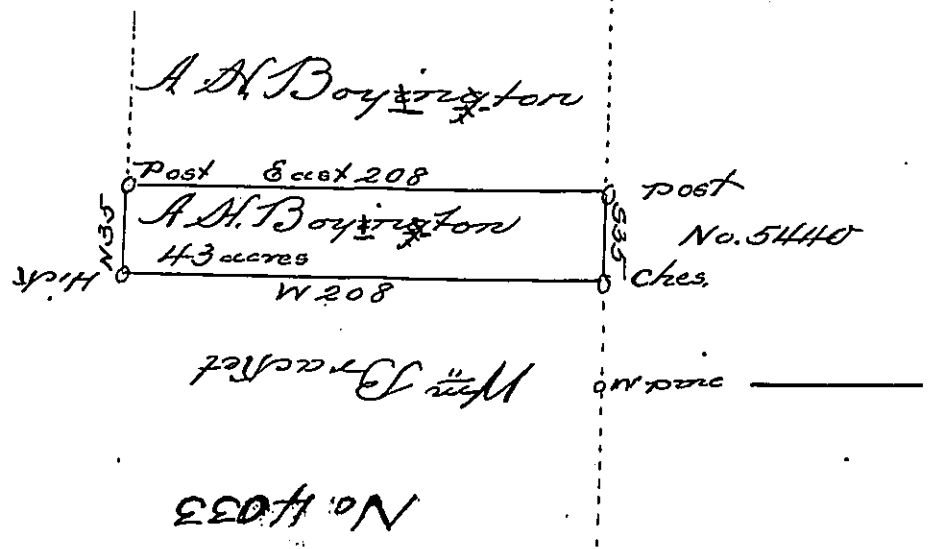 A. H. Boyington
Post East 208 post
N35 A. H. Boyington S35 No. 5440
43 acres
Hick W 208 Ches.
Wm Bracket
W. pine
No. 4033